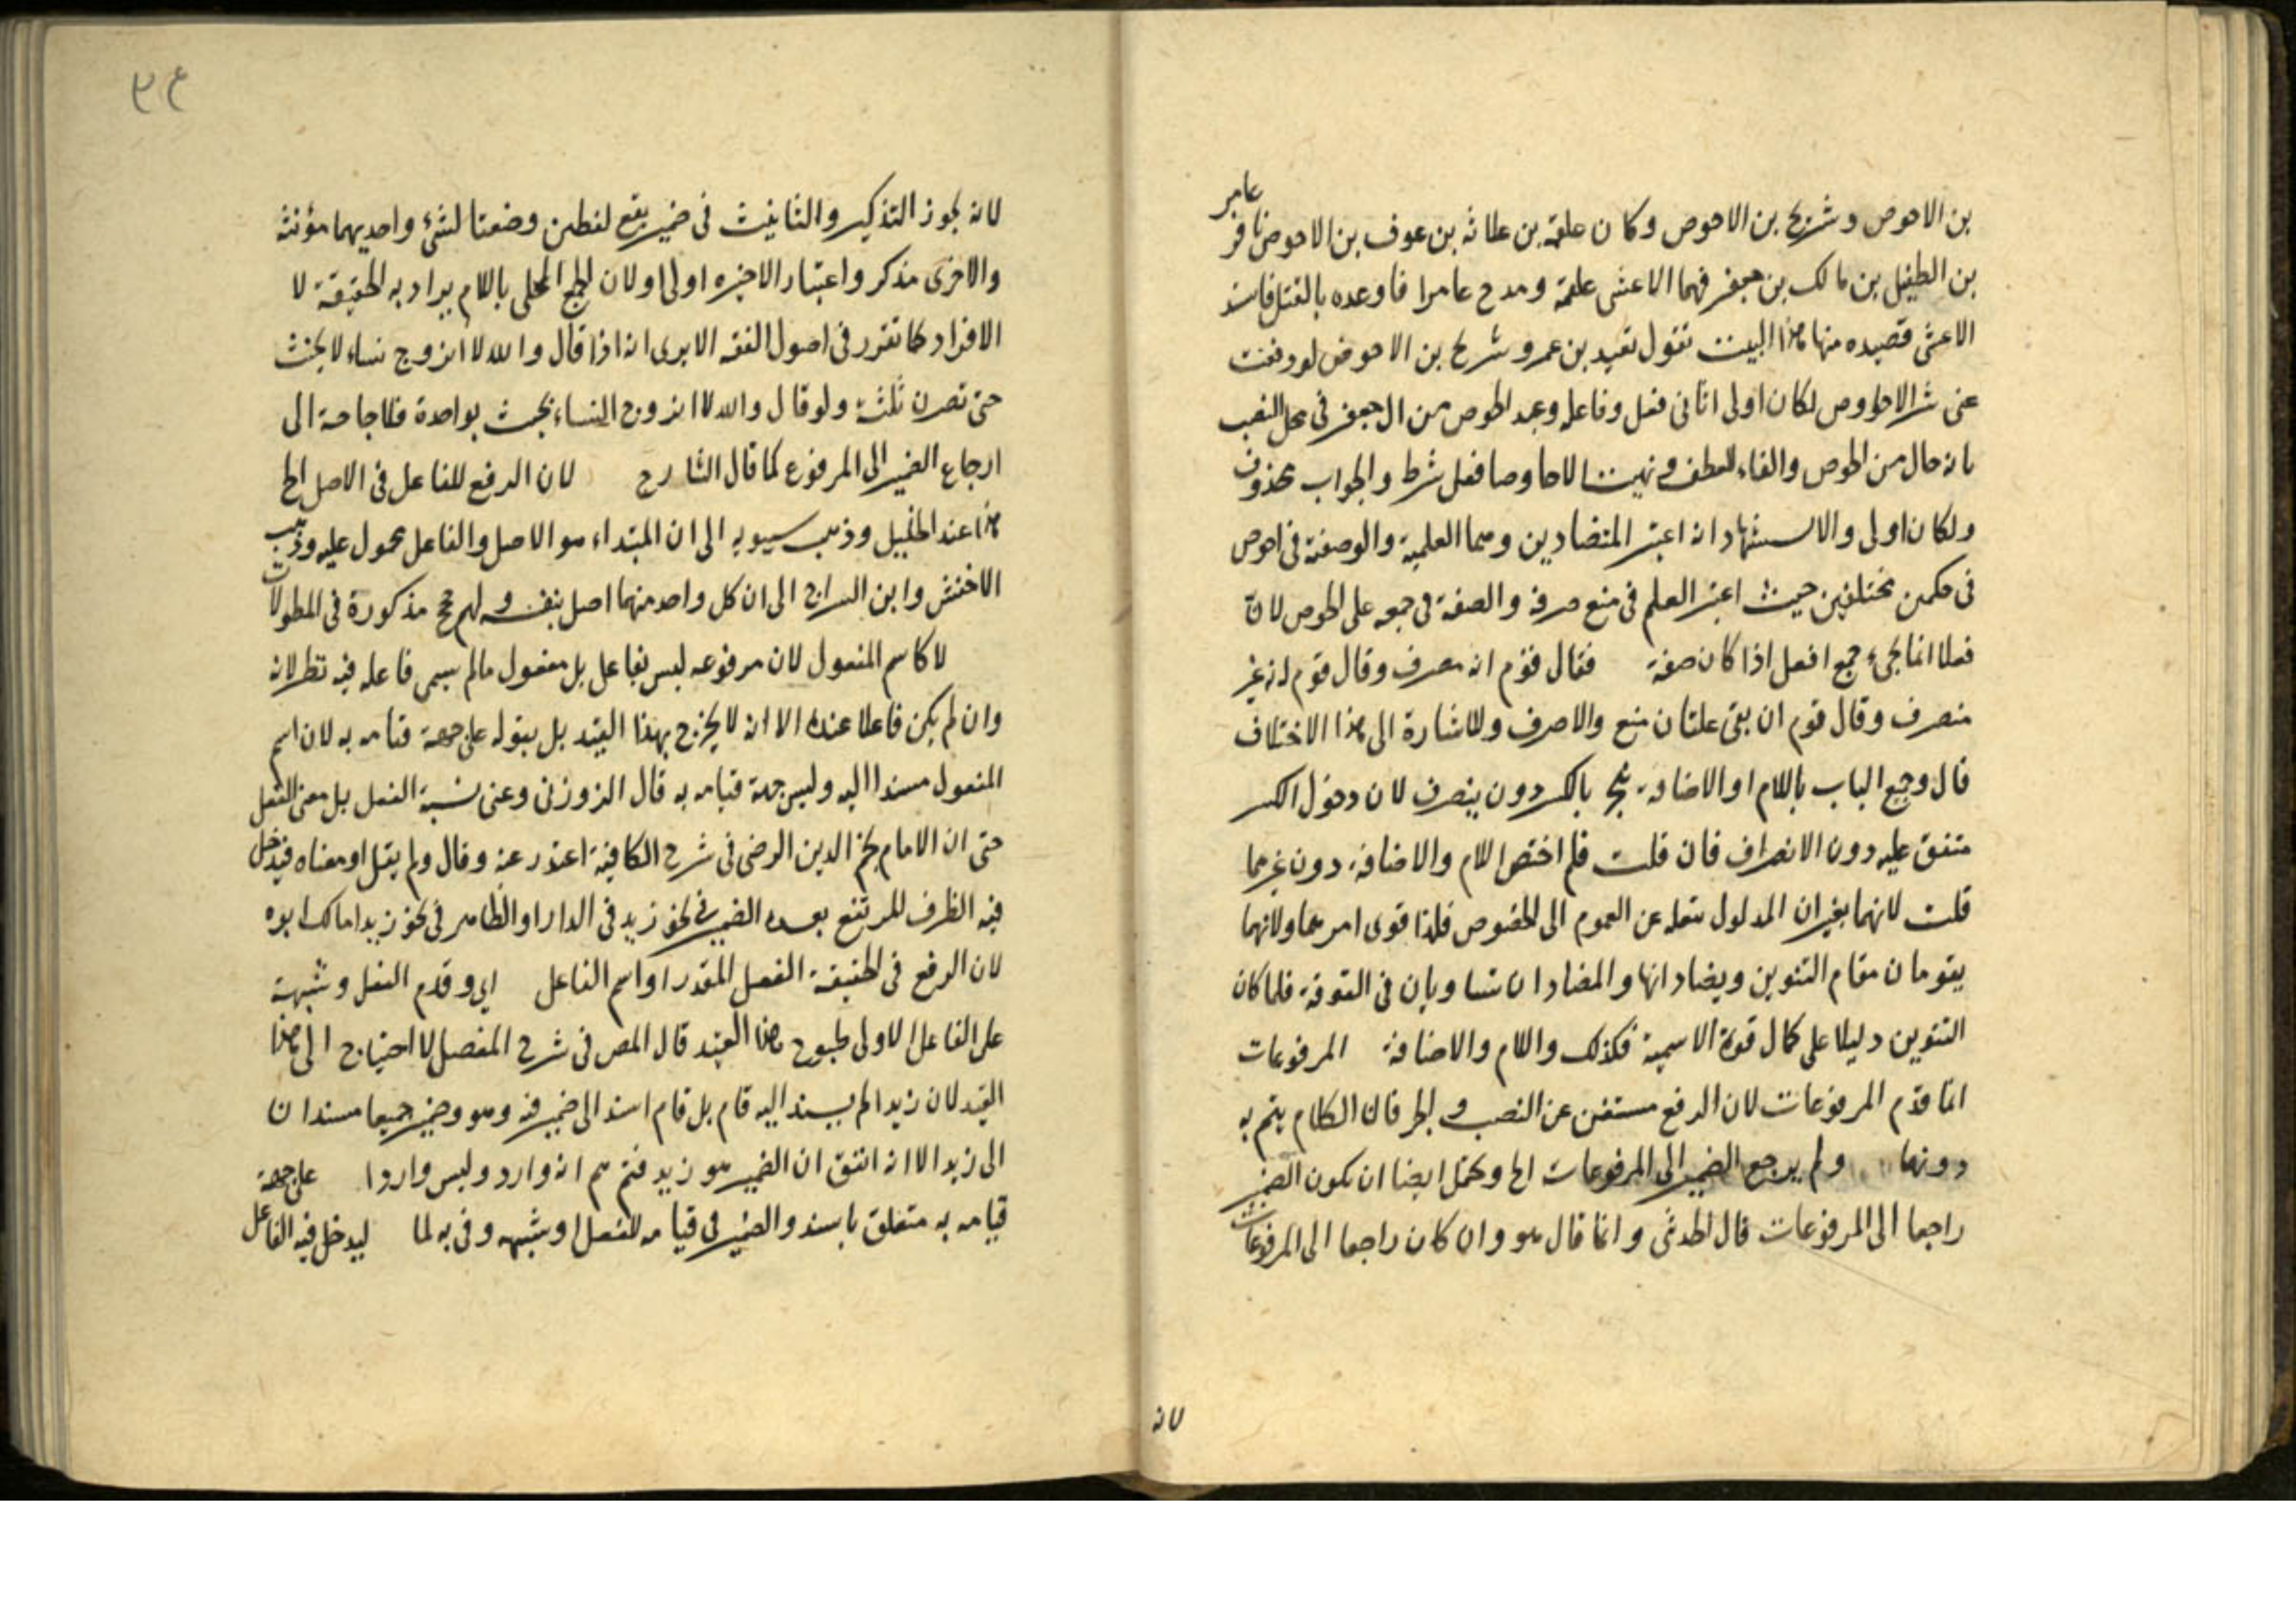 بن الاحوص وشريح بن الاحوص وكان علقمة بن علاثه بن عوف بن الاحوص نافر عامر
بن الطفيل بن مالك بن جعفر فهجا الاعشى علقمة ومدح عامرا فاوعده بالقتل فانشد
الاعشى قصيده منها هذا البيت تقول تعيد بن عمرو شريح بن الاحوص لو دفعت
عنى شر الاحاوص لكان اولى اتانى فعل وفاعله وعبد الحوص من ال جعفر فى محل النصب
بانه حال من الحوص والفاء للعطف ونهيت الاحاوصا فعل شرط والجواب محذوف
ولكان اولى والاستشهاد انه اعتبر المتضادين وهما العلمية والوصفية فى احوص
فى حكمين مختلفين حيث اعتبر العلم فى منع صرفه والصفة فى جمعه على الحوص لانّ
فعلا انما يجىء جمع افعل اذا كان صفة فقال قوم انه منصرف وقال قوم انه غير
منصرف وقال قوم ان بقى علتان منع والا صرف وللاشارة الى هذا الاختلاف
قال وجميع الباب باللام او الاضافة ينجر بالكسر دون ينصرف لان دخول الكسر
متفق عليه دون الانصراف فان قلت فلم اختص اللام والاضافة دون غيرهما
قلت لانهما يغيران المدلول بنقله عن العموم الى الخصوص فلذا قوى امرهما ولانهما
يقومان مقام التنوين ويضادانها والمضادان متساويان فى القوة فلما كان
التنوين دليلا على كمال قوة الاسمية فكذلك واللام والاضافة المرفوعات
انما قدم المرفوعات لان الرفع مستغن عن النصب والجر فان الكلام يتم به
دونهما ولم يرجع الضمير الى المرفوعات الخ ويحتمل ايضا ان يكون الضمير
راجعا الى المرفوعات قال الحدثى وانما قال هو وان كان راجعا الى المرفوعات
لانه
٣٤
لانه يجوز التذكير والتانيث فى ضمير يقع لفظين وضعتا لشىء واحديهما مؤنثة
والاخرى مذكر واعتبار الاخيره اولى او لان الجمع المحلى باللام يراد به الحقيقة لا
الافراد كما تقرر فى اصول الفقه الا يرى انه اذا قال والله لا اتزوج نساء لا يحنث
حتى تصرن ثلثة ولو قال والله لا اتزوج النساء يحنث بواحدة فلا حاجة الى
ارجاع الضمير الى المرفوع كما قال الشارح لان الرفع للفاعل فى الاصل الخ
هذا عند الخليل وذهب سيبويه الى ان المبتداء هو الاصل والفاعل محمول عليه وذهب
الاخفش وابن السراج الى ان كل واحد منهما اصل بنفسه ولهم حجج مذكورة فى المطولات
لا كاسم المفعول لان مرفوعه ليس بفاعل بل مفعول مالم يسمى فاعله فيه نظر لانه
وان لم يكن فاعلا عنده الا انه لا يخرج بهذا القيد بل بقوله على جهة قيامه به لان اسم
المفعول مسندا اليه وليس جهة قيامه به قال الزوزنى وعنى نسبة الفعل بل معنى الفعل
حتى ان الامام نجم الدين الرضى فى شرح الكافية اعتذر عنه وقال ولم يقل او معناه فيدخل
فيه الظرف للمرتفع بعده الضمير فى نحو زيد فى الدار او الظاهر فى نحو زيد امامك ابوه
لان الرفع فى الحقيقة الفعل المقدر او اسم الفاعل اى وقدم الفعل وشبهة
على الفاعل الاولى هذا القيد قال المص فى شرح المفصل لا احتياج الى هذا
القيد لان زيد الم يسند اليه قام بل قام اسند الى ضمير فيه وهو وضمير جميعا مسندان
الى زيد الا انه اتفق ان الضمير هو زيد انه وارد وليس واردا على جهة
قيامه به متعلق باسند والضمير فى قيامه للفعل او شبهه وفى به لما ليدخل فيه الفاعل